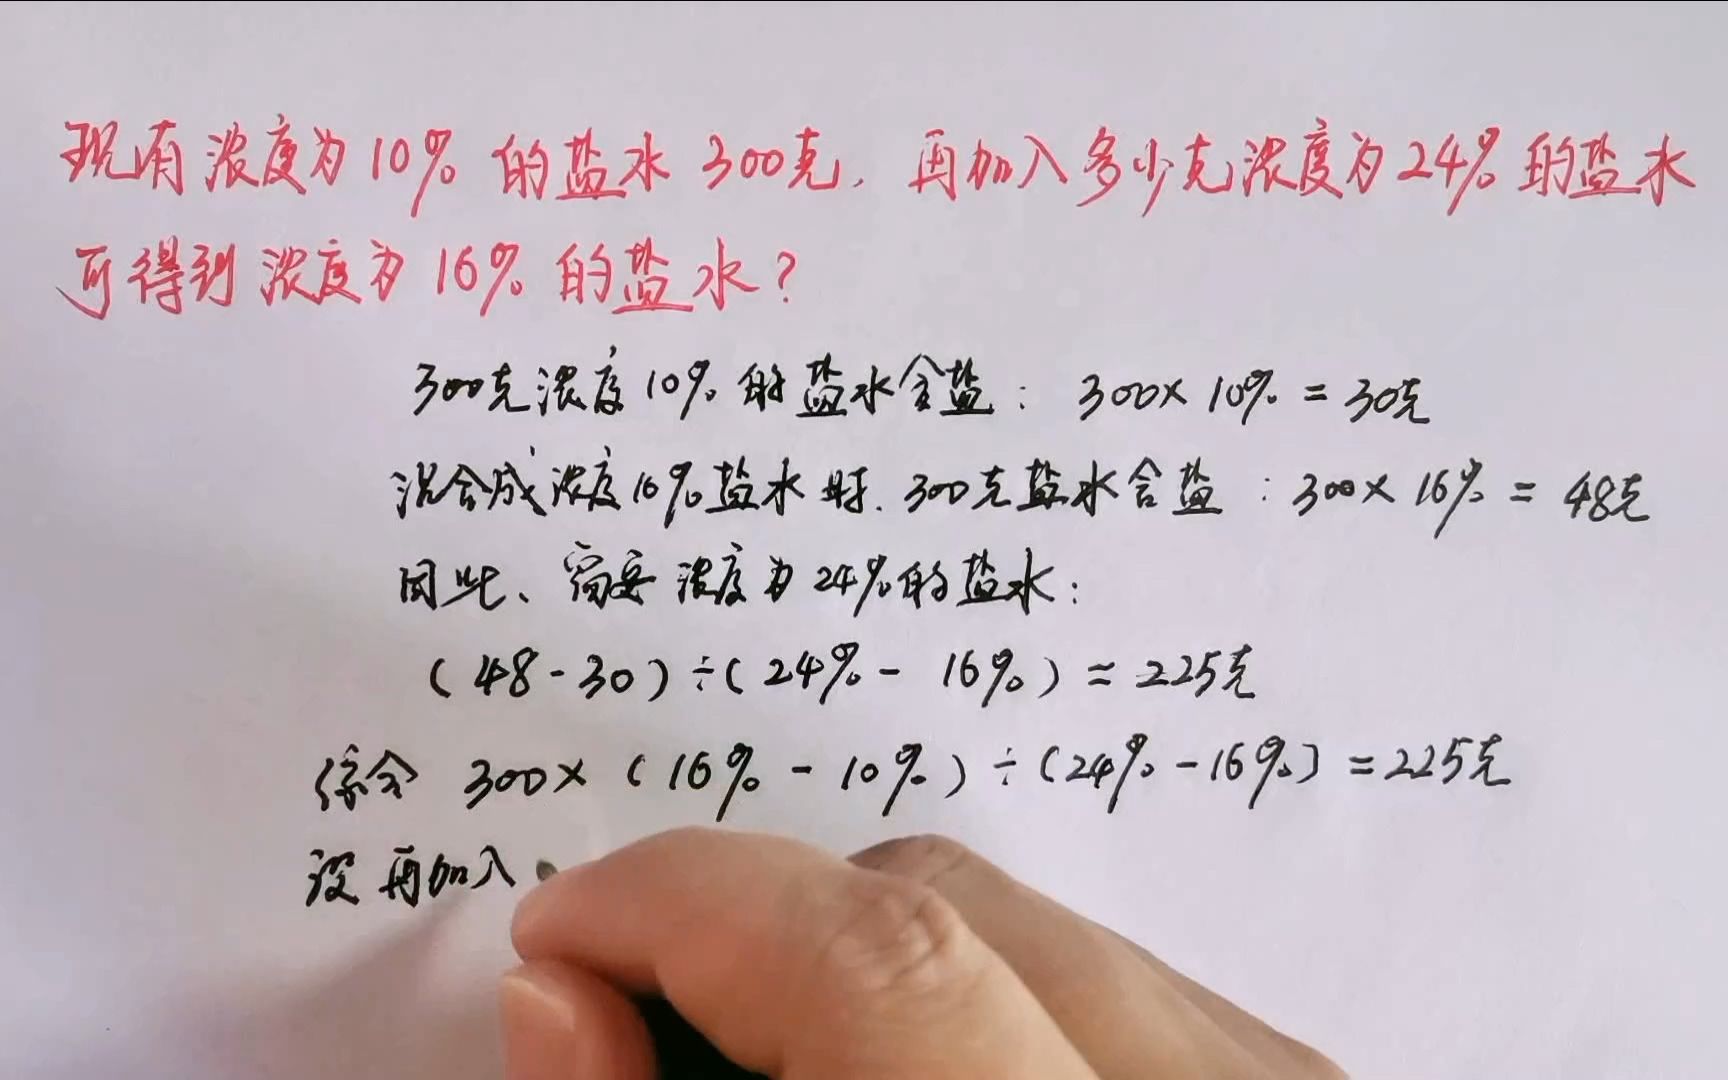 现有浓度为10%的盐水300克,再加入多少克浓度为24%的盐水
可得到浓度为16%的盐水?
300克浓度10%的盐水含盐:300×10%=30克
混合成浓度16%盐水时.300克盐水含盐:300×16%=48克
因此、需要浓度为24%的盐水:
(48-30)÷(24%-16%)=225克
综合 300×(16%-10%)÷(24%-16%)=225克
设再加入